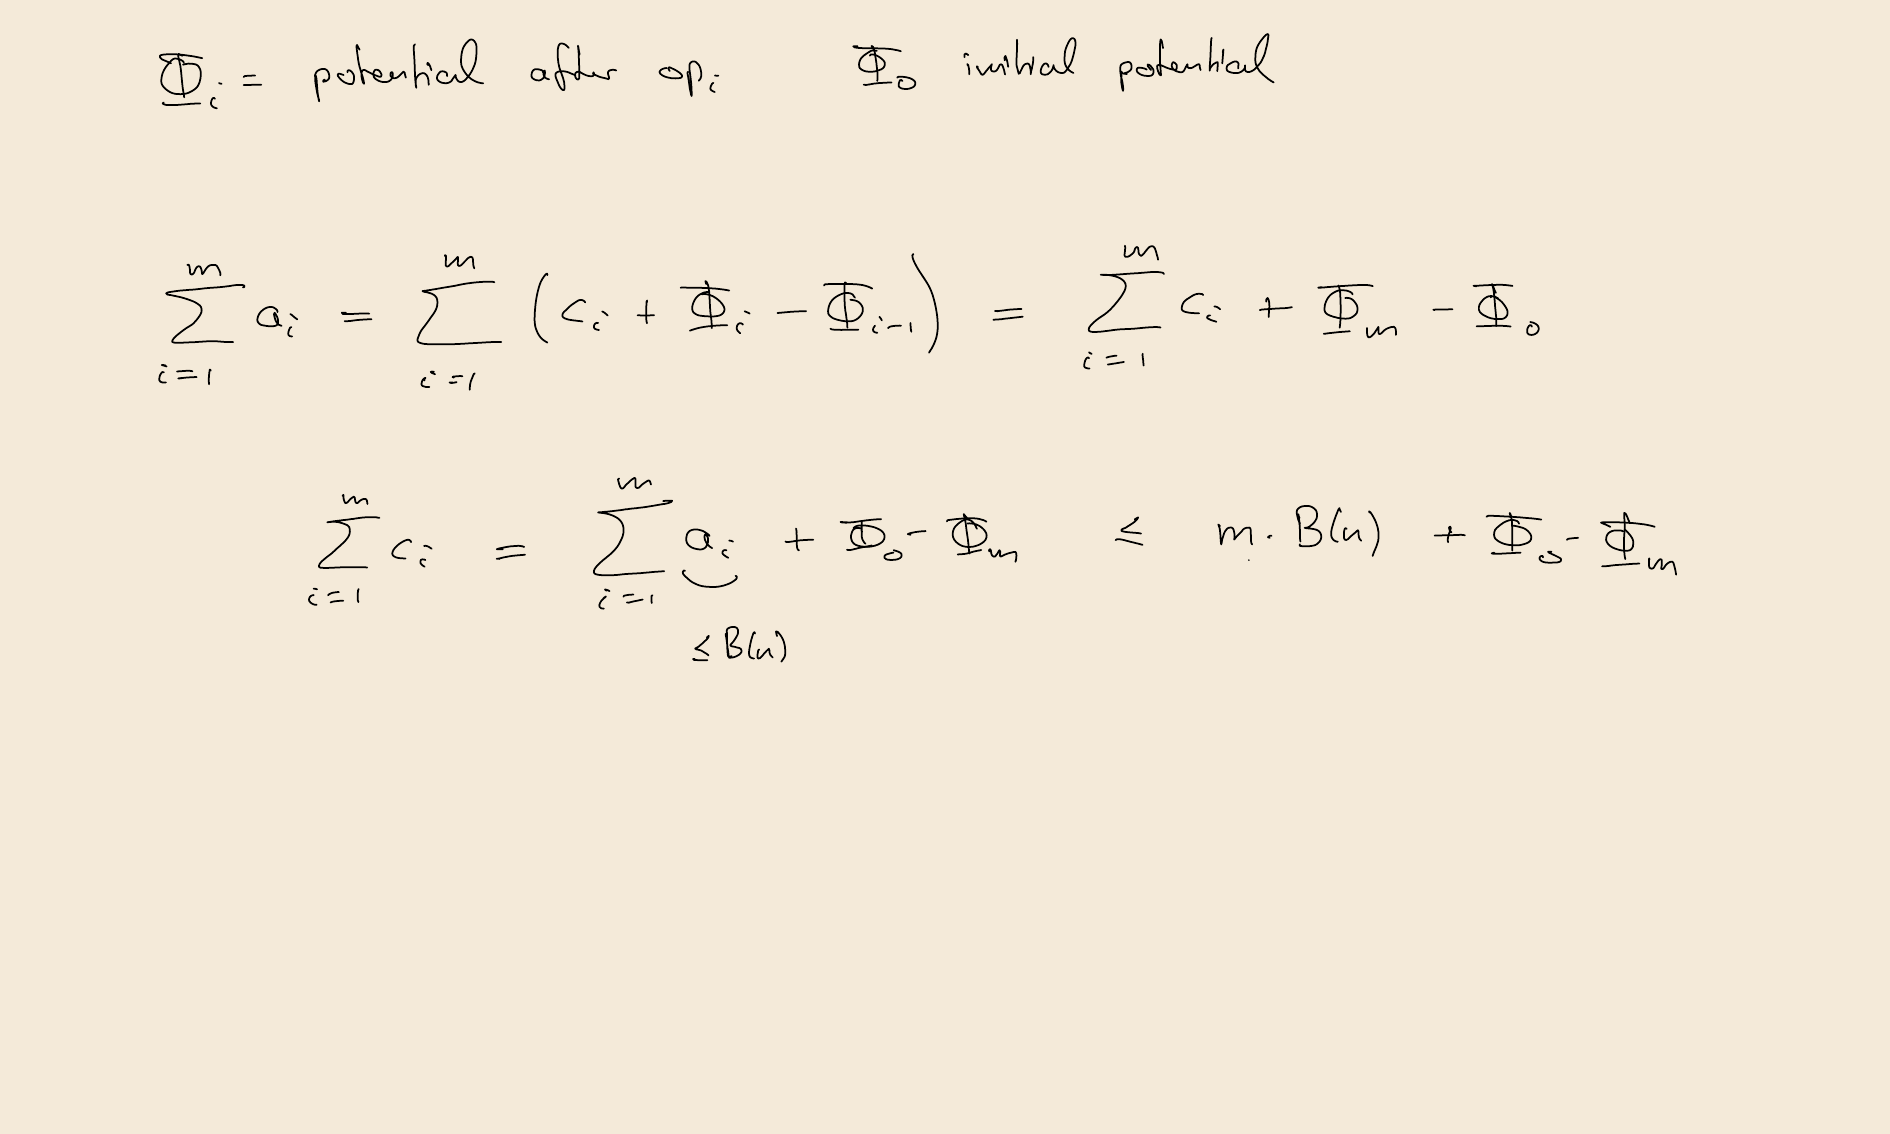 Φᵢ = potential after opᵢ    Φ₀ initial potential
∑_{i=1}^{m} aᵢ = ∑_{i=1}^{m} (cᵢ + Φᵢ − Φᵢ₋₁) = ∑_{i=1}^{m} cᵢ + Φₘ − Φ₀
∑_{i=1}^{m} cᵢ = ∑_{i=1}^{m} aᵢ + Φ₀ − Φₘ ≤ m · B(n) + Φ₀ − Φₘ
≤ B(n)